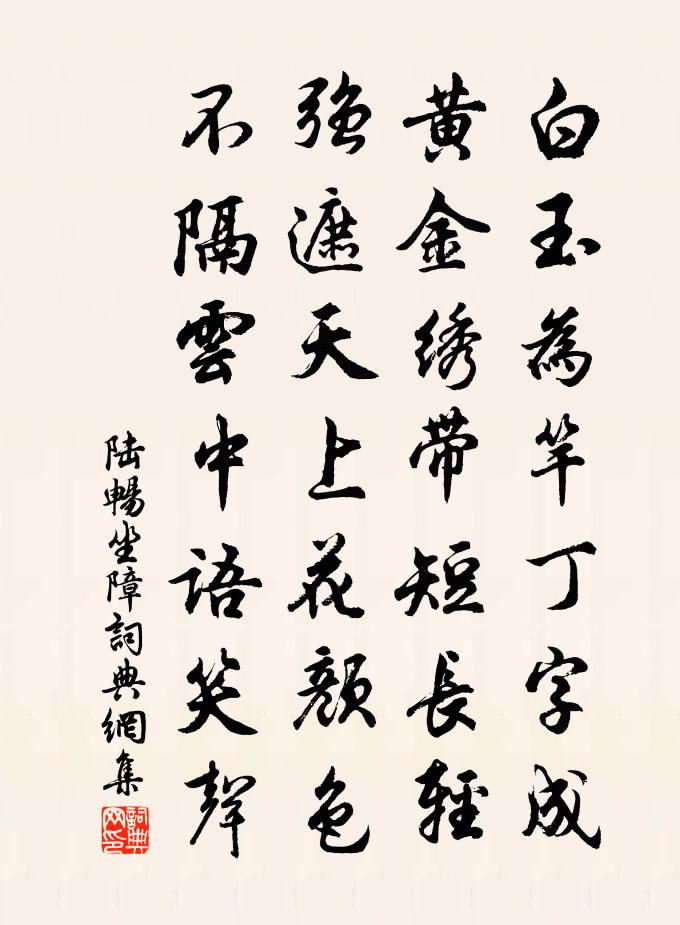 白玉為竿丁字成
黃金綉帶短長輕
強遮天上花顏色
不隔雲中語笑聲
陸暢坐障詞典網集
詞典網印